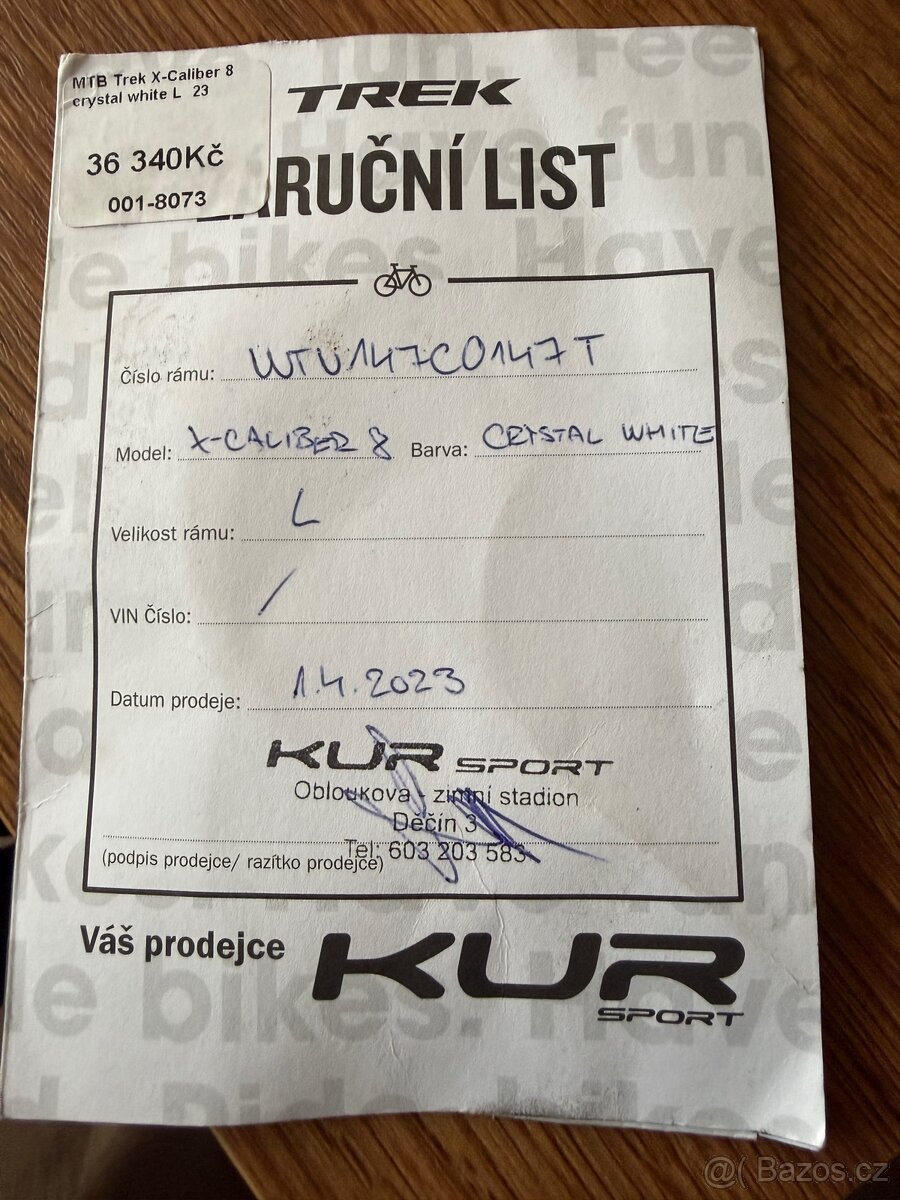 MTB Trek X-Caliber 8
crystal white L 23
36 340Kč
001-8073
TREK
ZÁRUČNÍ LIST
Číslo rámu: WTU147CO147T
Model: X-CALIBER 8 Barva: CRYSTAL WHITE
Velikost rámu: L
VIN Číslo: /
Datum prodeje: 1.4.2023
KUR SPORT
Obloukova - zimní stadion
Děčín 3
Tel: 603 203 583
(podpis prodejce/ razítko prodejce)
Váš prodejce KUR
SPORT
@( Bazos.cz